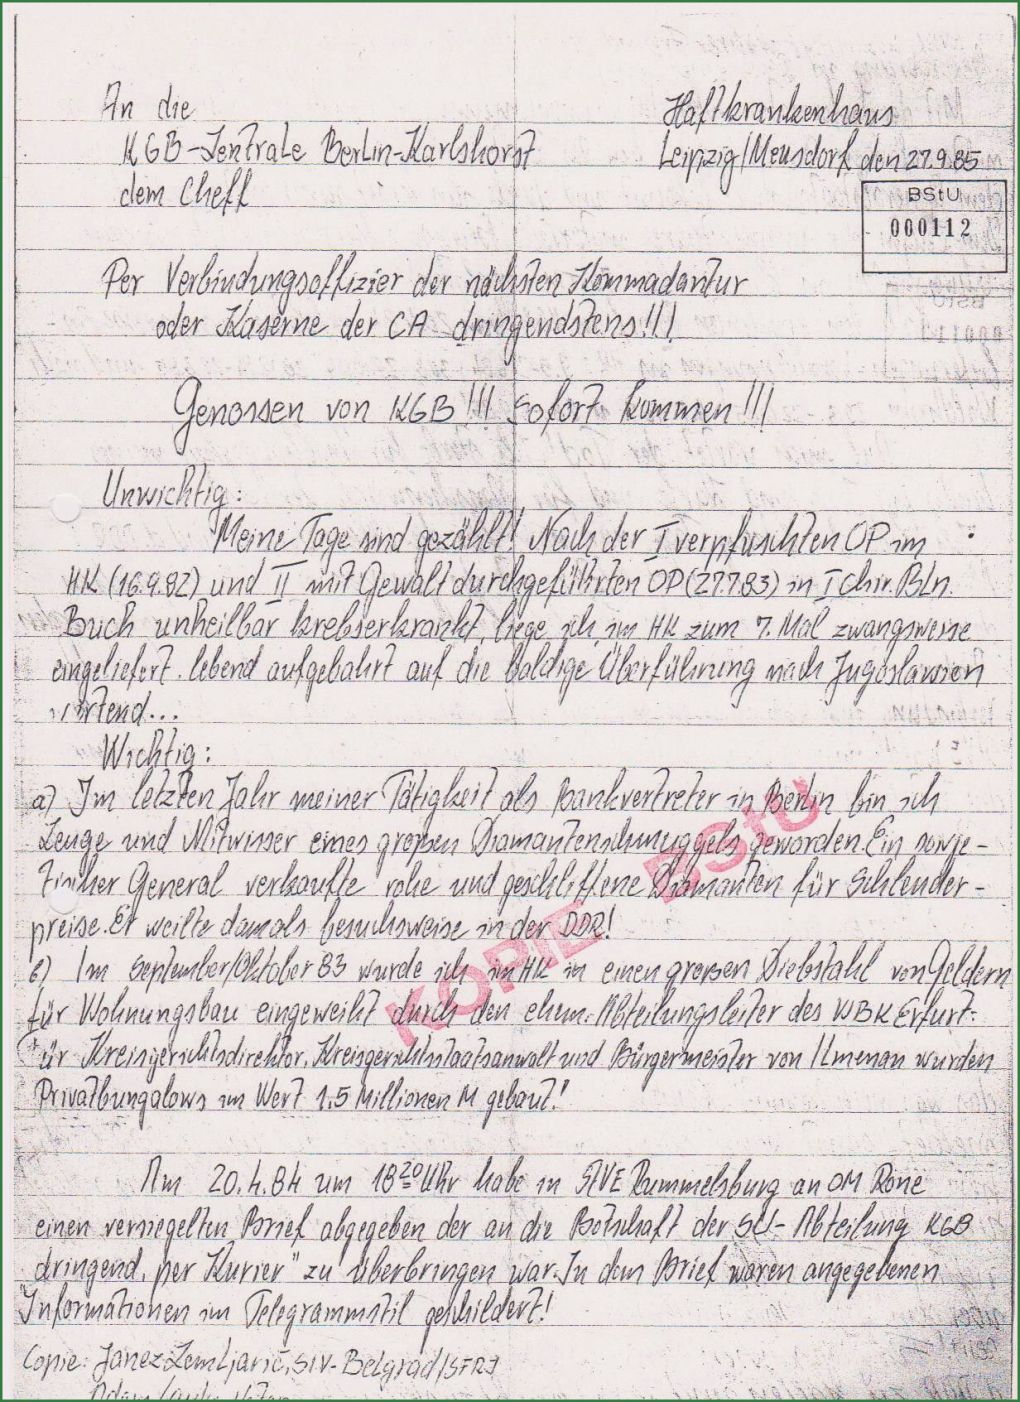 An die
KGB-Zentrale Berlin-Karlshorst
dem Cheff
Haftkrankenhaus
Leipzig/Meusdorf den 27.9.85
BStU
000112
Per Verbindungsoffizier der nächsten Kommadantur
oder Kaserne der CA dringendstens!!!
Genossen von KGB!!! Sofort kommen!!!
Unwichtig:
Meine Tage sind gezählt! Nach der I verpfuschten OP im
HK (16.9.82) und II mit Gewalt durchgeführten OP (27.7.83) in I Chir. Bln.
Buch unheilbar krebserkrankt, liege ich im HK zum 7. Mal zwangsweise
eingeliefert. lebend aufgebahrt auf die baldige Überführung nach Jugoslawien
wartend...
Wichtig:
a) Im letzten Jahr meiner Tätigkeit als Bankvertreter in Berlin bin ich
Zeuge und Mitwisser eines großen Diamantenschmuggels geworden. Ein sowje-
tischer General verkaufte rohe und geschliffene Diamanten für Schleuder-
preise. Er weilte damals besuchsweise in der DDR!
b) Im September/Oktober 83 wurde ich im HK in einen großen Diebstahl von Geldern
für Wohnungsbau eingeweiht durch den ehem. Abteilungsleiter des WBK Erfurt.
Für Kreisgerichtsdirektor, Kreisgerichtsstaatsanwalt und Bürgermeister von Ilmenau wurden
Privatbungalows im Wert 1.5 Millionen M gebaut!
KOPIE BStU
Am 20.4.84 um 18 20 Uhr habe in StVE Rummelsburg an OM Rone
einen versiegelten Brief abgegeben der an die Botschaft der SU- Abteilung KGB
dringend, per Kurier" zu überbringen war. In dem Brief waren angegebenen
Informationen im Telegrammstil geschildert!
Copie: Janez Zemljarič, SIV-Belgrad/SFRJ